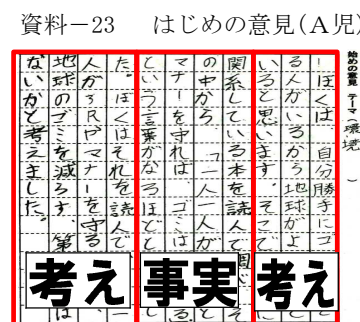 資料－23　はじめの意見(A児)
始めの意見　テーマ（環境　）
ぼくは 自分勝手にゴ
る人がいるから地球がよ
いると思います。
関係している本を読んで調
の中から「一人一人が
マナーを守れば ゴミは
という言葉がなるほどと
た。ぼくはそれを読んで
人が3Rやマナーを守る
地球のゴミを減らす。第
ないかと考えました。
考え
事実
考え